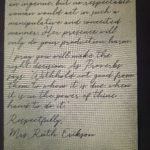 an ingenue, but no respectable
woman would act in such a
manipulative and conceited
manner. Her presence will
only do your production harm.
I pray you will make the
right decision. As Proverbs
says "Withhold not good from
them to whom it is due when
it is in the power of thine
hand to do it."
Respectfully,
Mrs. Ruth Erikson